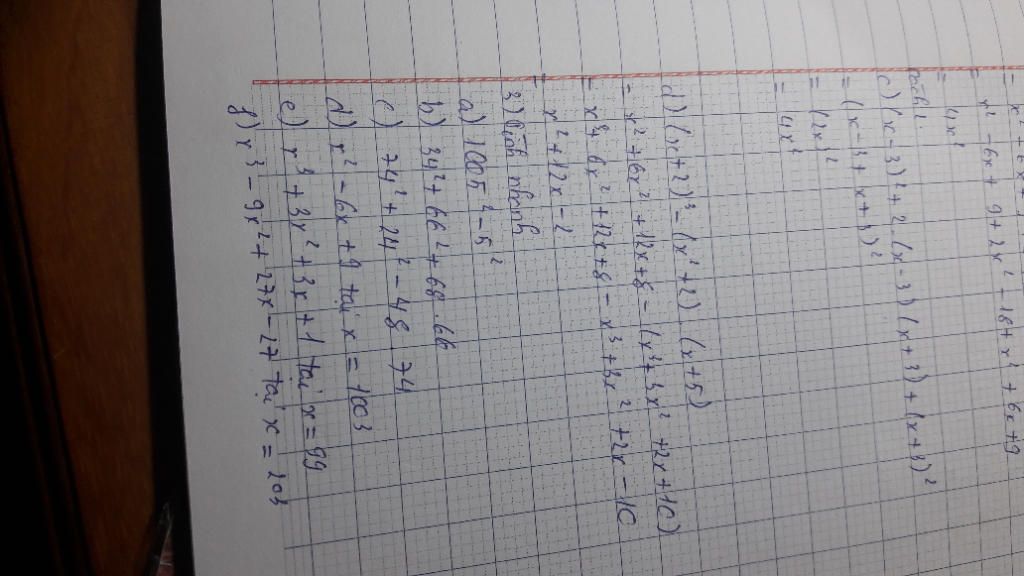 = x² - 6x + 9 + 2x² - 18 + x² + 6x + 9
= 4x²
c) (x - 3)² + 2 . (x - 3) (x + 3) + (x + 3)²
= (x - 3 + x + 3)²
= (2x)²
= 4x²
d) (x + 2)³ - (x² + 2) . (x + 5)
= x² + 6x² + 12x + 8 - (x³ + 3x² + 2x + 10)
= x³ + 6x² + 12x + 8 - x³ + 3x² + 2x - 10
= x² + 12x - 2
3) Tính nhanh
a) 1005² - 5²
b) 34² + 66² + 68 . 66
c) 74² + 24² - 48 . 74
d) x² - 6x + 9 tại x = 1003
e) x³ + 3x² + 3x + 1 tại x = 99
g) x³ - 9x² + 27x - 27 tại x = 103